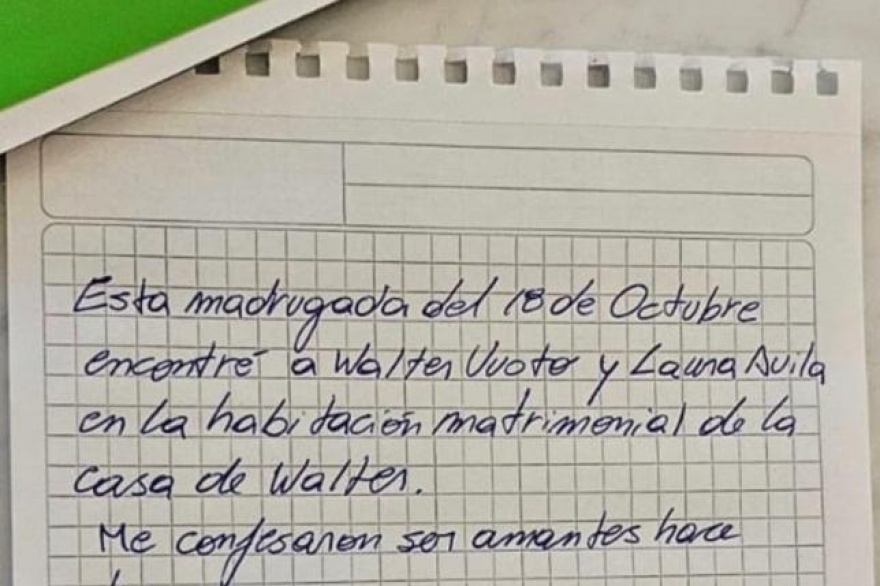 Esta madrugada del 18 de Octubre
encontré a Walter Vuoto y Laura Avila
en la habitación matrimonial de la
casa de Walter.
Me confesaron ser amantes hace